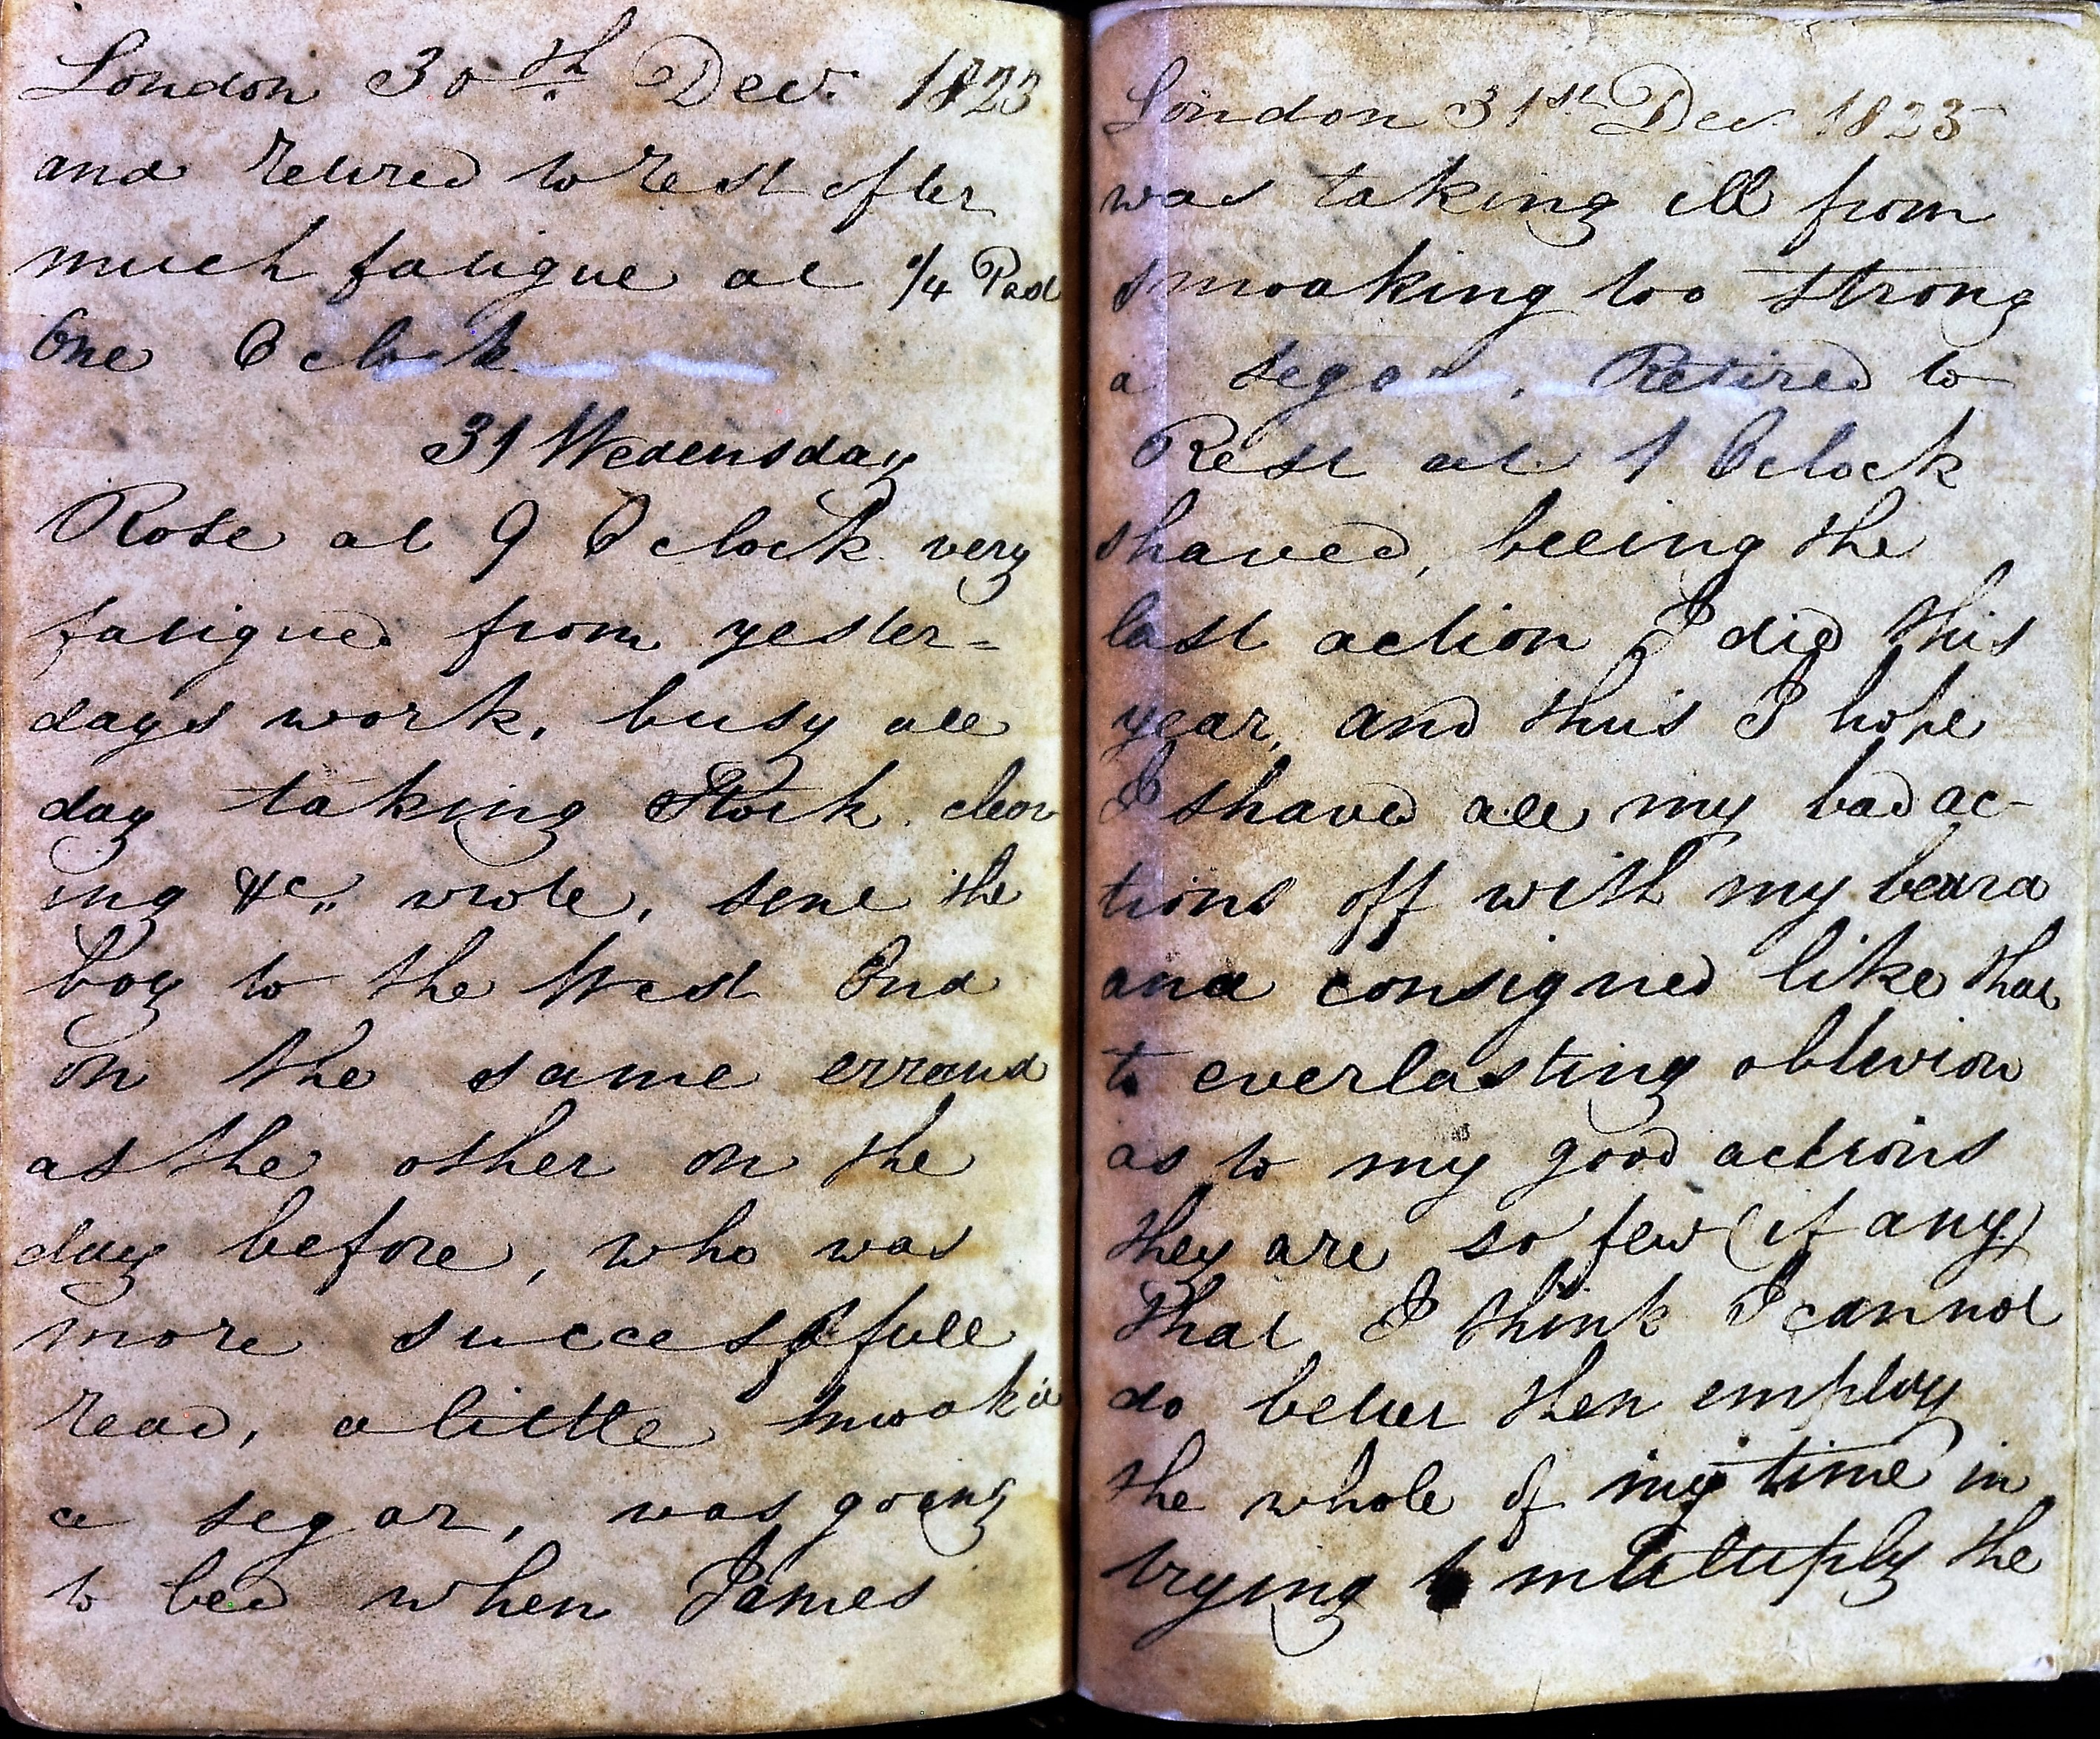 London 30th Decr. 1823
and retired to rest after
much fatigue at 1/4 Past
One O clock
31 Wedensday
Rose at 9 O clock very
fatigued from yester=
days work, busy all
day taking Stock. clear
ing &c,, wrote, sent the
boy to the West End
on the same errand
as the other on the
day before, who was
more successfull
read, a little smoakd
a segar, was going
to bed when James
London 31st Decr 1823
was taking ill from
smoaking too strong
a segar, Retired to
Rest at 1 Oclock
shaved, beeing the
last action I did this
year, and thus I hope
I shaved all my bad ac-
tions off with my beard
and consigned like that
to everlasting oblivion
as to my good actions
they are so few (if any)
that I think I cannot
do better then employ
the whole of my time in
trying to multiply the